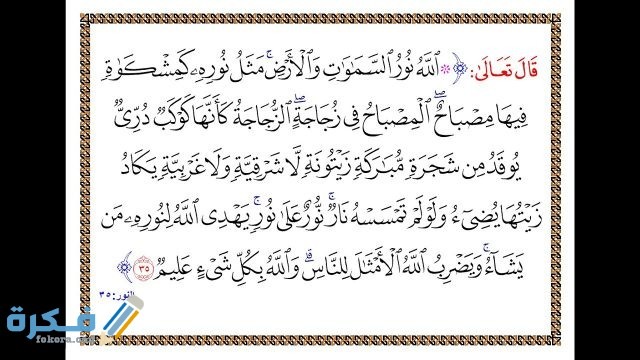 قَالَ تَعَالَىٰ: ﴿ * ٱللَّهُ نُورُ ٱلسَّمَٰوَٰتِ وَٱلْأَرْضِۚ مَثَلُ نُورِهِۦ كَمِشْكَوٰةٍ
فِيهَا مِصْبَاحٌۖ ٱلْمِصْبَاحُ فِى زُجَاجَةٍۖ ٱلزُّجَاجَةُ كَأَنَّهَا كَوْكَبٌ دُرِّىٌّ
يُوقَدُ مِن شَجَرَةٍ مُّبَٰرَكَةٍ زَيْتُونَةٍ لَّا شَرْقِيَّةٍ وَلَا غَرْبِيَّةٍ يَكَادُ
زَيْتُهَا يُضِىٓءُ وَلَوْ لَمْ تَمْسَسْهُ نَارٌۚ نُّورٌ عَلَىٰ نُورٍۗ يَهْدِى ٱللَّهُ لِنُورِهِۦ مَن
يَشَآءُۚ وَيَضْرِبُ ٱللَّهُ ٱلْأَمْثَٰلَ لِلنَّاسِۗ وَٱللَّهُ بِكُلِّ شَىْءٍ عَلِيمٌ ٣٥ ﴾
النور: ٣٥
فكرة
fokora.org